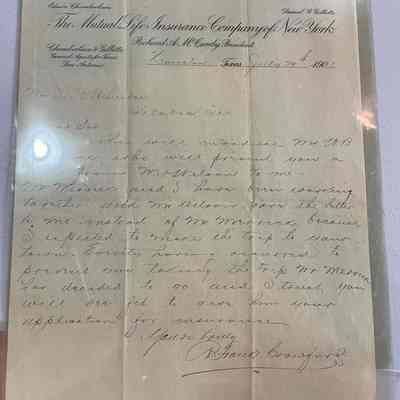 Edwin Chamberlain
Daniel W. Gillette
The Mutual Life Insurance Company of New York
Richard A. McCurdy President
Chamberlain & Gillette
General Agents for Texas
San Antonio
Texas July 1901
Dear Sir
This will introduce Mr
who will present you a
from Mr Nelson to me.
Mr and I have been working
together and Mr Nelson gave the letter
to me instead of Mr because
I expected to make the trip to your
town. Events having occurred to
prevent me taking the trip Mr
has decided to go and I trust you
will see fit to give him your
application for insurance
Yours truly
Crawford